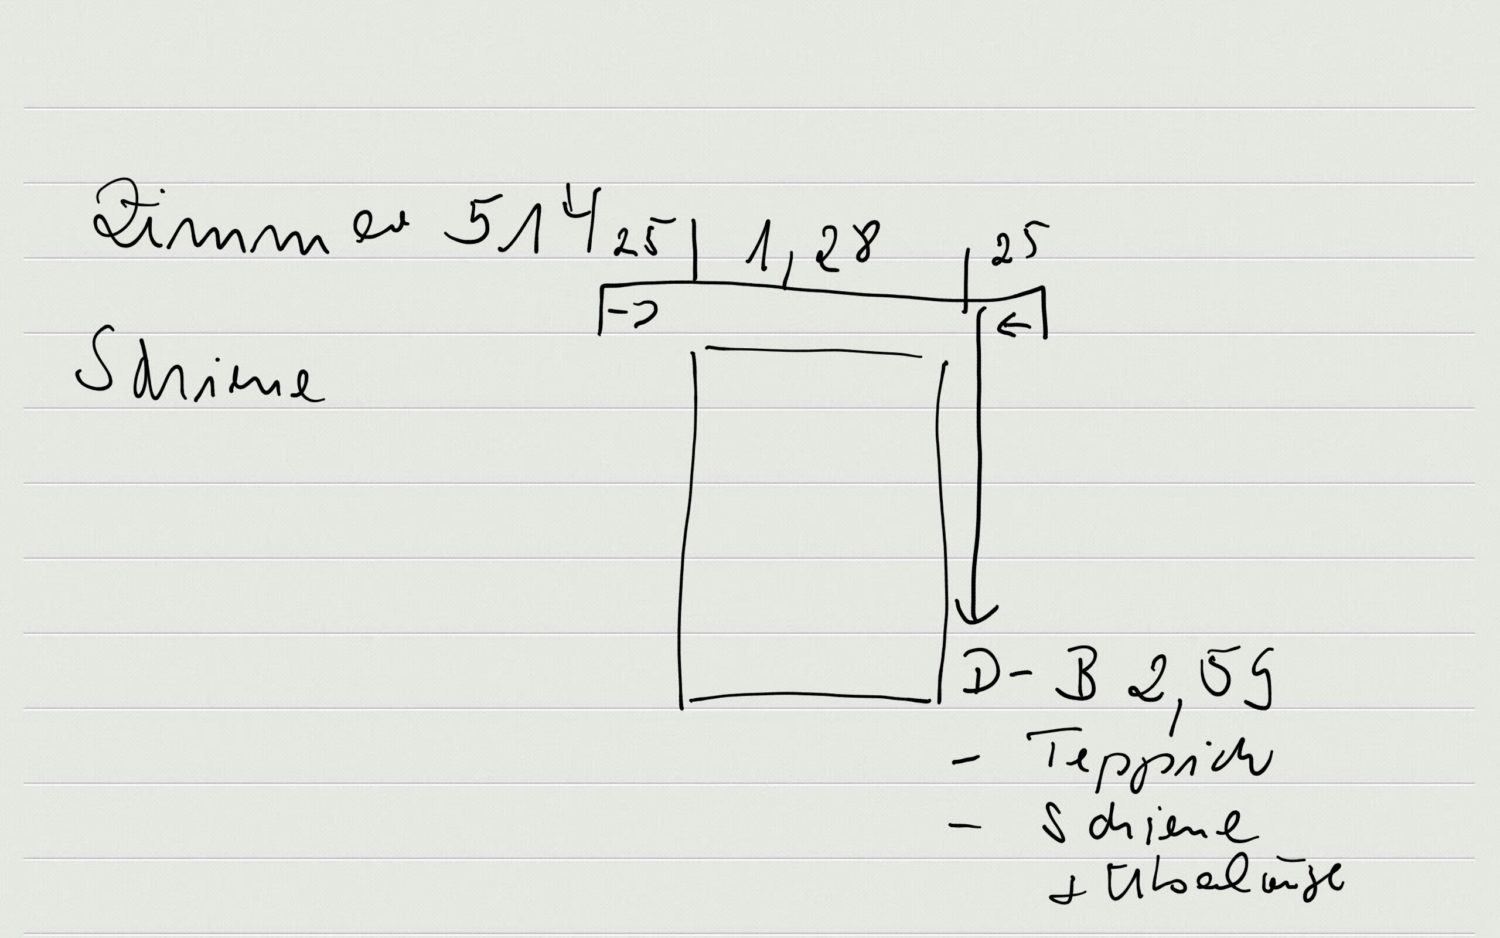 Zimmer 514
25 1,28 25
Schiene
D-B 2,59
- Teppich
- Schiene
+ Überlänge